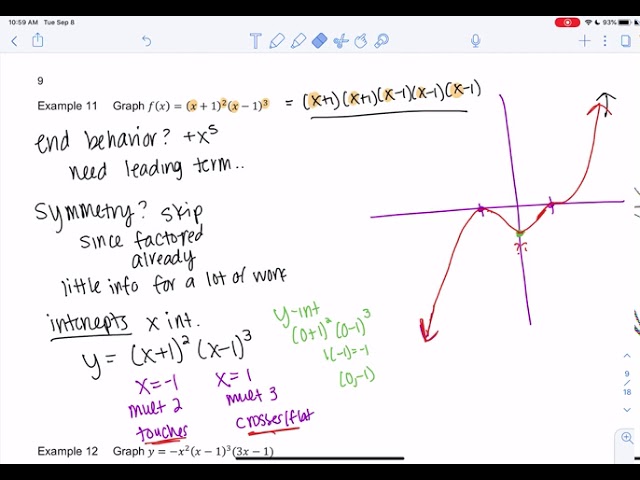 10:59 AM Tue Sep 8
93%
9
Example 11 Graph f(x) = (x + 1)²(x − 1)³ = (x+1)(x+1)(x-1)(x-1)(x-1)
end behavior? +x⁵
need leading term..
symmetry? skip
since factored
already
little info for a lot of work
intercepts x int.
y = (x+1)² (x-1)³
x=-1 x=1
mult 2 mult 3
touches crosses/flat
y-int
(0+1)² (0-1)³
1(-1)=-1
(0,-1)
??
9
/
18
Example 12 Graph y = −x²(x − 1)³(3x − 1)